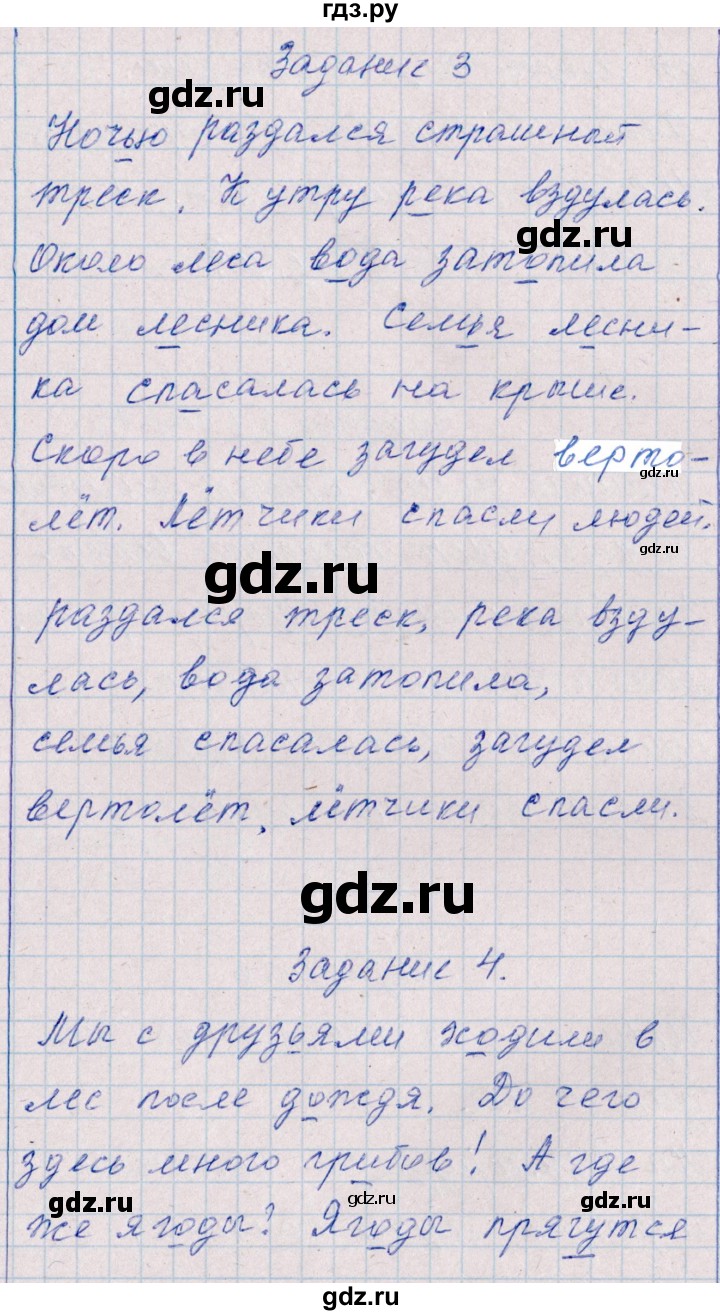 гдз.ру
Задание 3
gdz.ru
Ночью раздался страшный
треск. К утру река вздулась.
gdz.ru
Около леса вода затопила
дом лесника. Семья лесни-
ка спасалась на крыше.
Скоро в небе загудел верто-
gdz.ru
лёт. Лётчики спасли людей.
gdz.ru
gdz.ru
раздался треск, река взду-
лась, вода затопила,
семья спасалась, загудел
вертолёт, лётчики спасли.
gdz.ru
Задание 4.
Мы с друзьями ходили в
лес после дождя. До чего
здесь много грибов! А где
gdz.ru
gdz.ru
gdz.ru
же ягоды? Ягоды прягутся